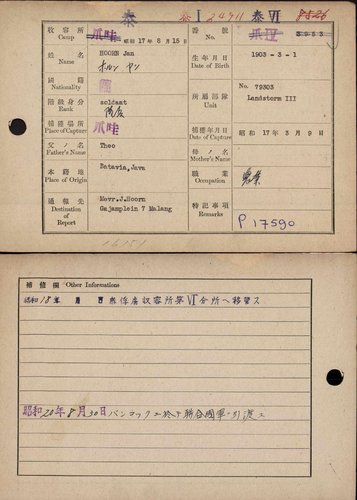 泰 I 24711 泰VI 8526
收容所 Camp 爪哇 昭和17年8月15日 番號 No. 爪哇 3953
姓名 Name HOORN Jan 生年月日 Date of Birth 1903-3-1
國籍 Nationality 蘭 所屬部隊 Unit No. 79303 Landstorm III
階級身分 Rank soldaat 兵
捕獲場所 Place of Capture 爪哇 捕獲年月日 Date of Capture 昭和 17年 3月 9日
父ノ名 Father's Name Theo 母ノ名 Mother's Name
本籍地 Place of Origin Batavia, Java 職業 Occupation
通報先 Destination of Report Mevr.J.Hoorn Gajamplein 7 Malang 特記事項 Remarks P 17590
16151
補修欄 Other Informations
昭和 18年 月 日 泰俘虜収容所第VI分所ヘ移管ス
昭和20年8月30日バンコックニ於テ聯合國軍ニ引渡ス